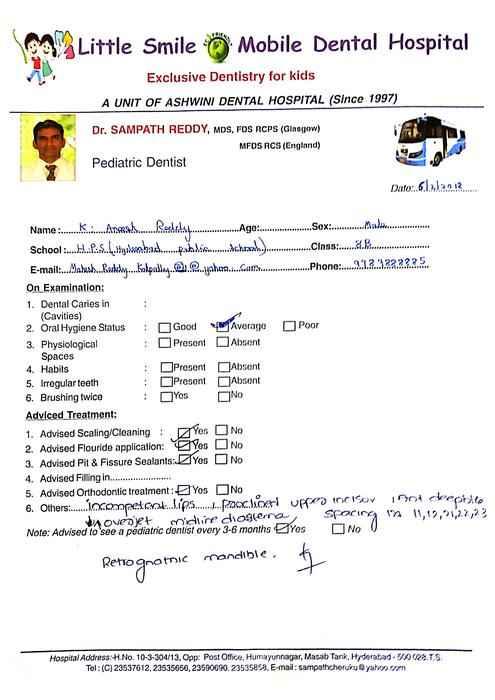 Little Smile Mobile Dental Hospital
Exclusive Dentistry for kids
A UNIT OF ASHWINI DENTAL HOSPITAL (Since 1997)
Dr. SAMPATH REDDY, MDS, FDS RCPS (Glasgow)
MFDS RCS (England)
Pediatric Dentist
Date: 6/2/2012
Name: K. Anoosh Reddy Age: Sex: Male
School: H.P.S (Hyderabad public school) Class: 8B
E-mail: Mahesh Reddy Kalpally @1@ yahoo. Com Phone: 9989888885
On Examination:
1. Dental Caries in :
(Cavities)
2. Oral Hygiene Status : Good Average Poor
3. Physiological : Present Absent
Spaces
4. Habits : Present Absent
5. Irregular teeth : Present Absent
6. Brushing twice : Yes No
Adviced Treatment:
1. Advised Scaling/Cleaning : Yes No
2. Advised Flouride application: Yes No
3. Advised Pit & Fissure Sealants: Yes No
4. Advised Filling in
5. Advised Orthodontic treatment: Yes No
6. Others: incompetent lips, proclined upper incisor, deepbite
overjet midline diastema, spacing in 11,12,21,22,23
Note: Advised to see a pediatric dentist every 3-6 months Yes No
Retrognathic mandible.
Hospital Address:-H.No. 10-3-304/13, Opp: Post Office, Humayunnagar, Masab Tank, Hyderabad - 500 028.T.S.
Tel : (C) 23537612, 23535656, 23590690, 23535858, E-mail : sampathcheruku@yahoo.com